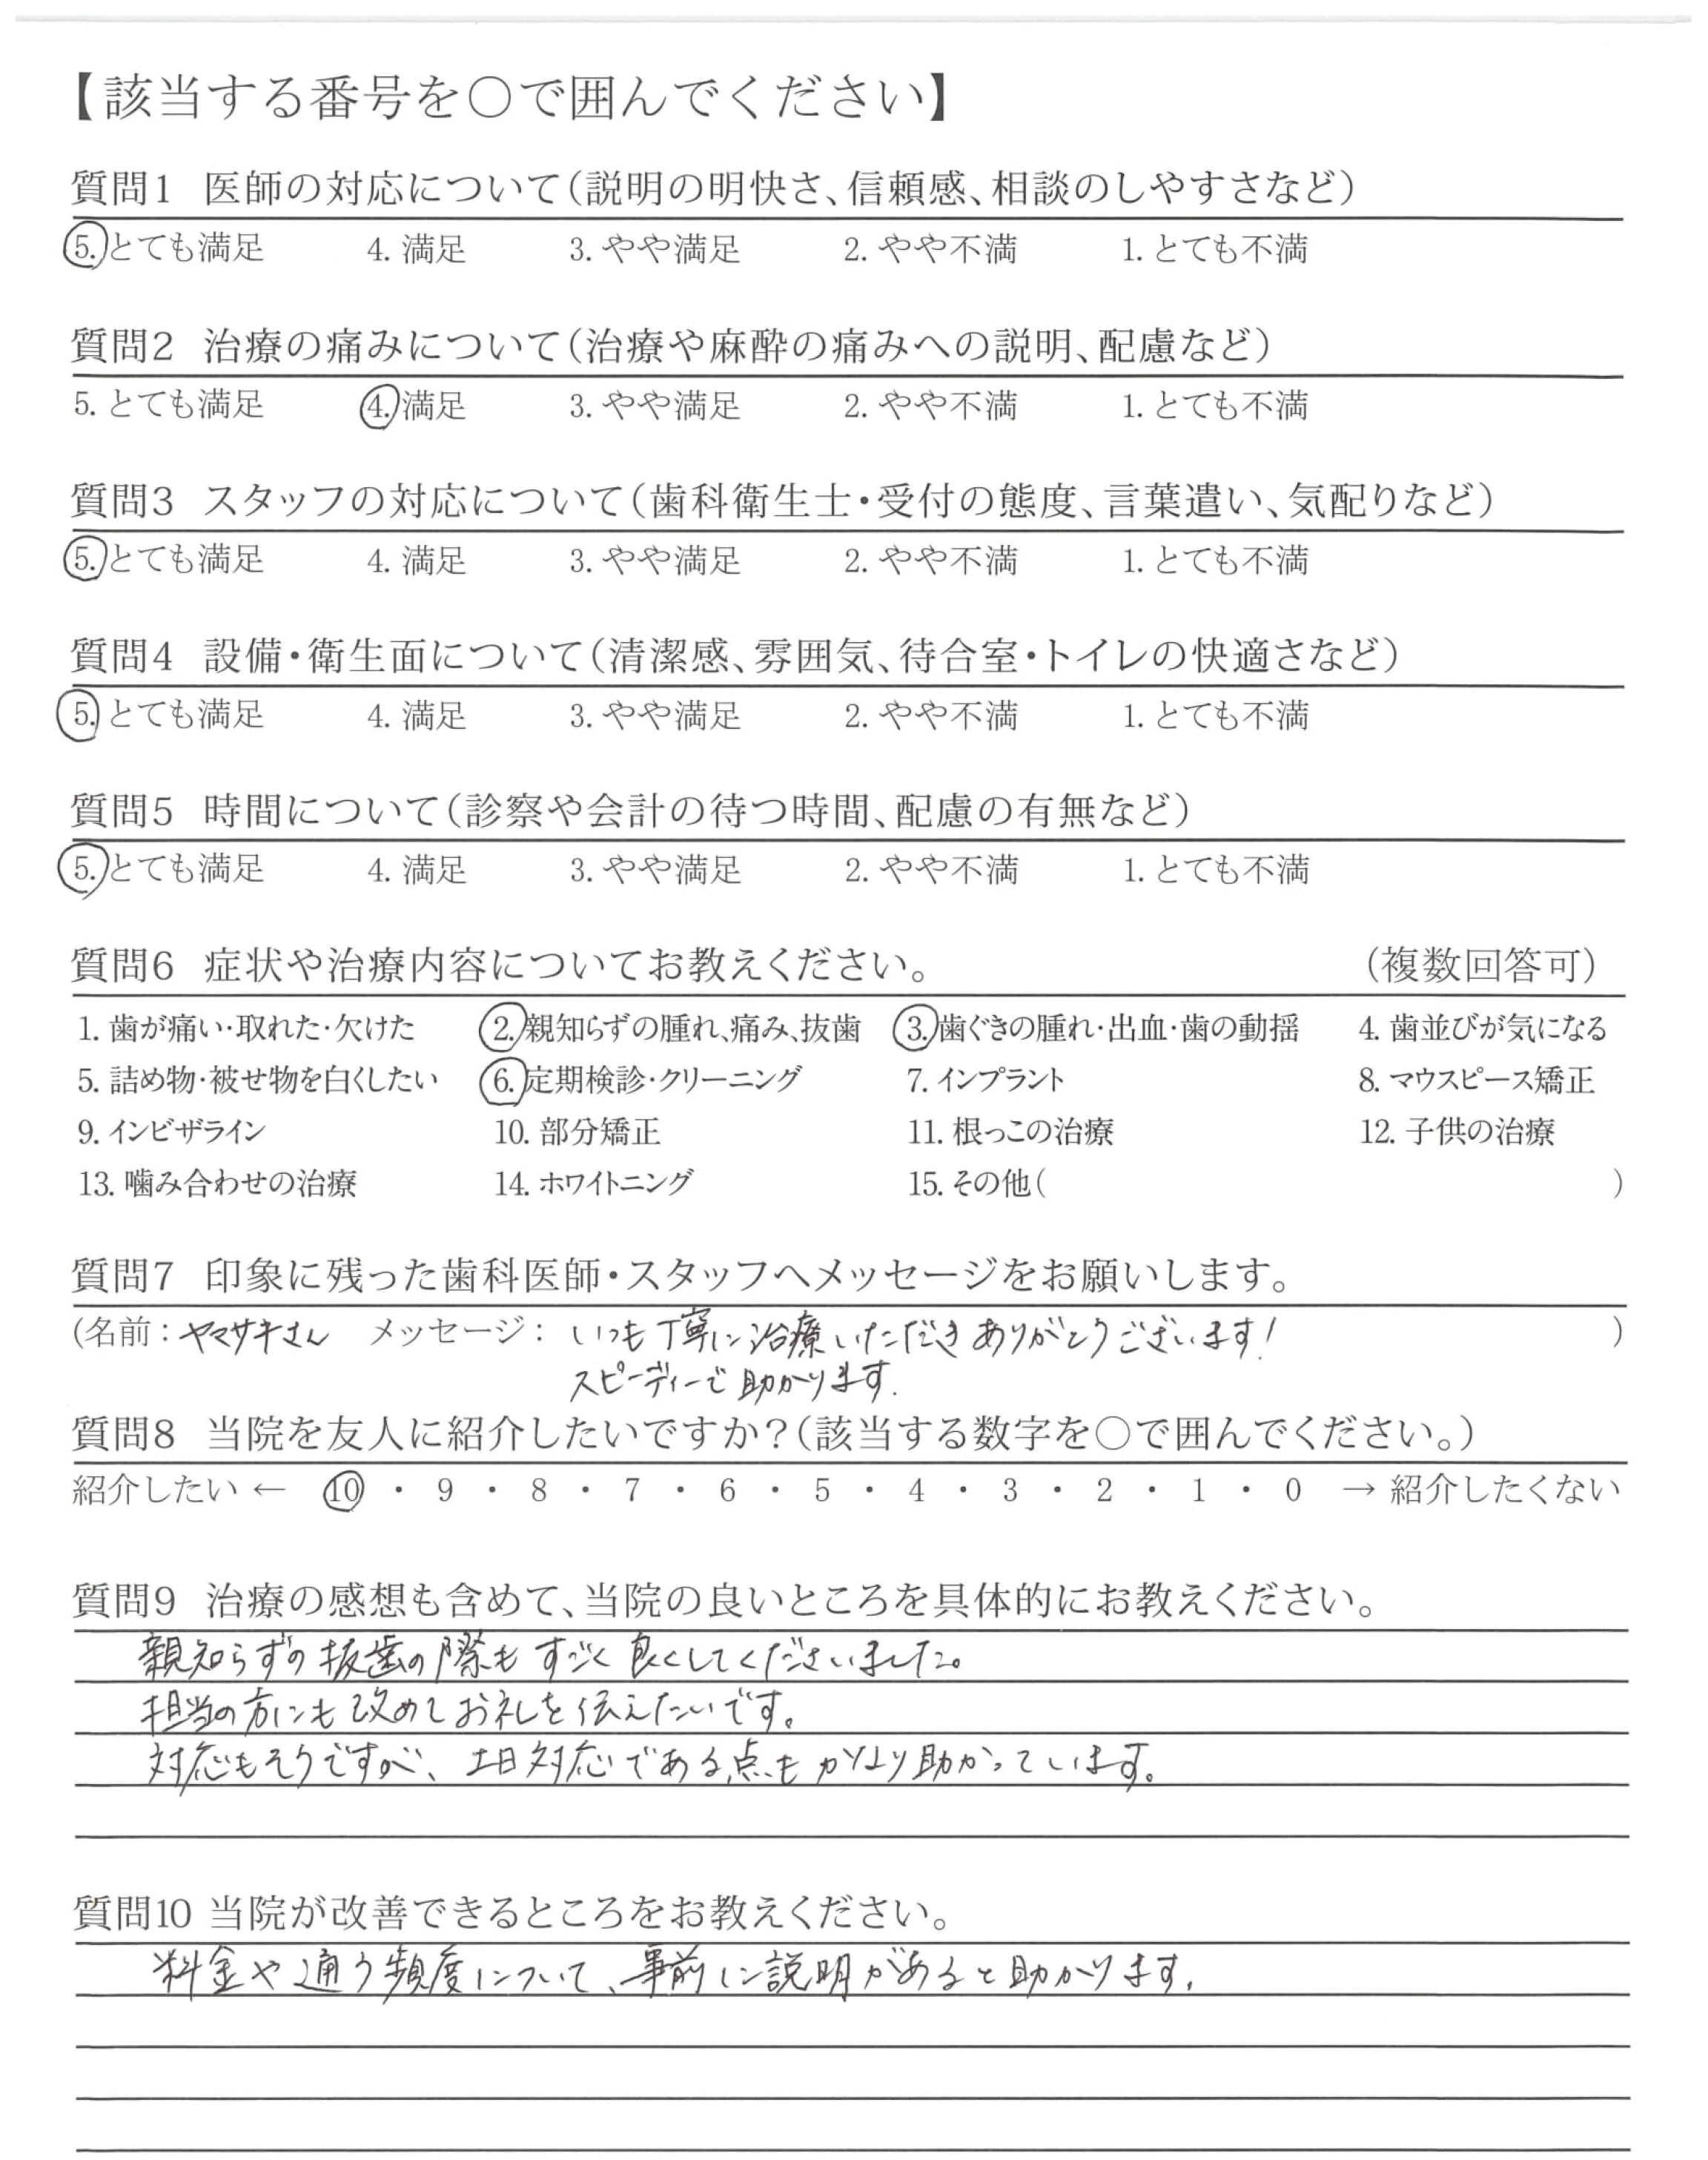 【該当する番号を○で囲んでください】
質問1 医師の対応について(説明の明快さ、信頼感、相談のしやすさなど)
5. とても満足 4. 満足 3. やや満足 2. やや不満 1. とても不満
質問2 治療の痛みについて(治療や麻酔の痛みへの説明、配慮など)
5. とても満足 4. 満足 3. やや満足 2. やや不満 1. とても不満
質問3 スタッフの対応について(歯科衛生士・受付の態度、言葉遣い、気配りなど)
5. とても満足 4. 満足 3. やや満足 2. やや不満 1. とても不満
質問4 設備・衛生面について(清潔感、雰囲気、待合室・トイレの快適さなど)
5. とても満足 4. 満足 3. やや満足 2. やや不満 1. とても不満
質問5 時間について(診察や会計の待つ時間、配慮の有無など)
5. とても満足 4. 満足 3. やや満足 2. やや不満 1. とても不満
質問6 症状や治療内容についてお教えください。 (複数回答可)
1. 歯が痛い・取れた・欠けた 2. 親知らずの腫れ、痛み、抜歯 3. 歯ぐきの腫れ・出血・歯の動揺 4. 歯並びが気になる
5. 詰め物・被せ物を白くしたい 6. 定期検診・クリーニング 7. インプラント 8. マウスピース矯正
9. インビザライン 10. 部分矯正 11. 根っこの治療 12. 子供の治療
13. 噛み合わせの治療 14. ホワイトニング 15. その他( )
質問7 印象に残った歯科医師・スタッフへメッセージをお願いします。
(名前：ヤマサキさん メッセージ：いつも丁寧に治療いただきありがとうございます! )
スピーディーで助かります.
質問8 当院を友人に紹介したいですか？(該当する数字を○で囲んでください。)
紹介したい ← 10 ・ 9 ・ 8 ・ 7 ・ 6 ・ 5 ・ 4 ・ 3 ・ 2 ・ 1 ・ 0 → 紹介したくない
質問9 治療の感想も含めて、当院の良いところを具体的にお教えください。
親知らずの抜歯の際もすごく良くしてくださいました。
担当の方にも改めてお礼を伝えたいです。
対応もそうですが、土日対応である点もかなり助かっています。
質問10 当院が改善できるところをお教えください。
料金や通う頻度について、事前に説明があると助かります.